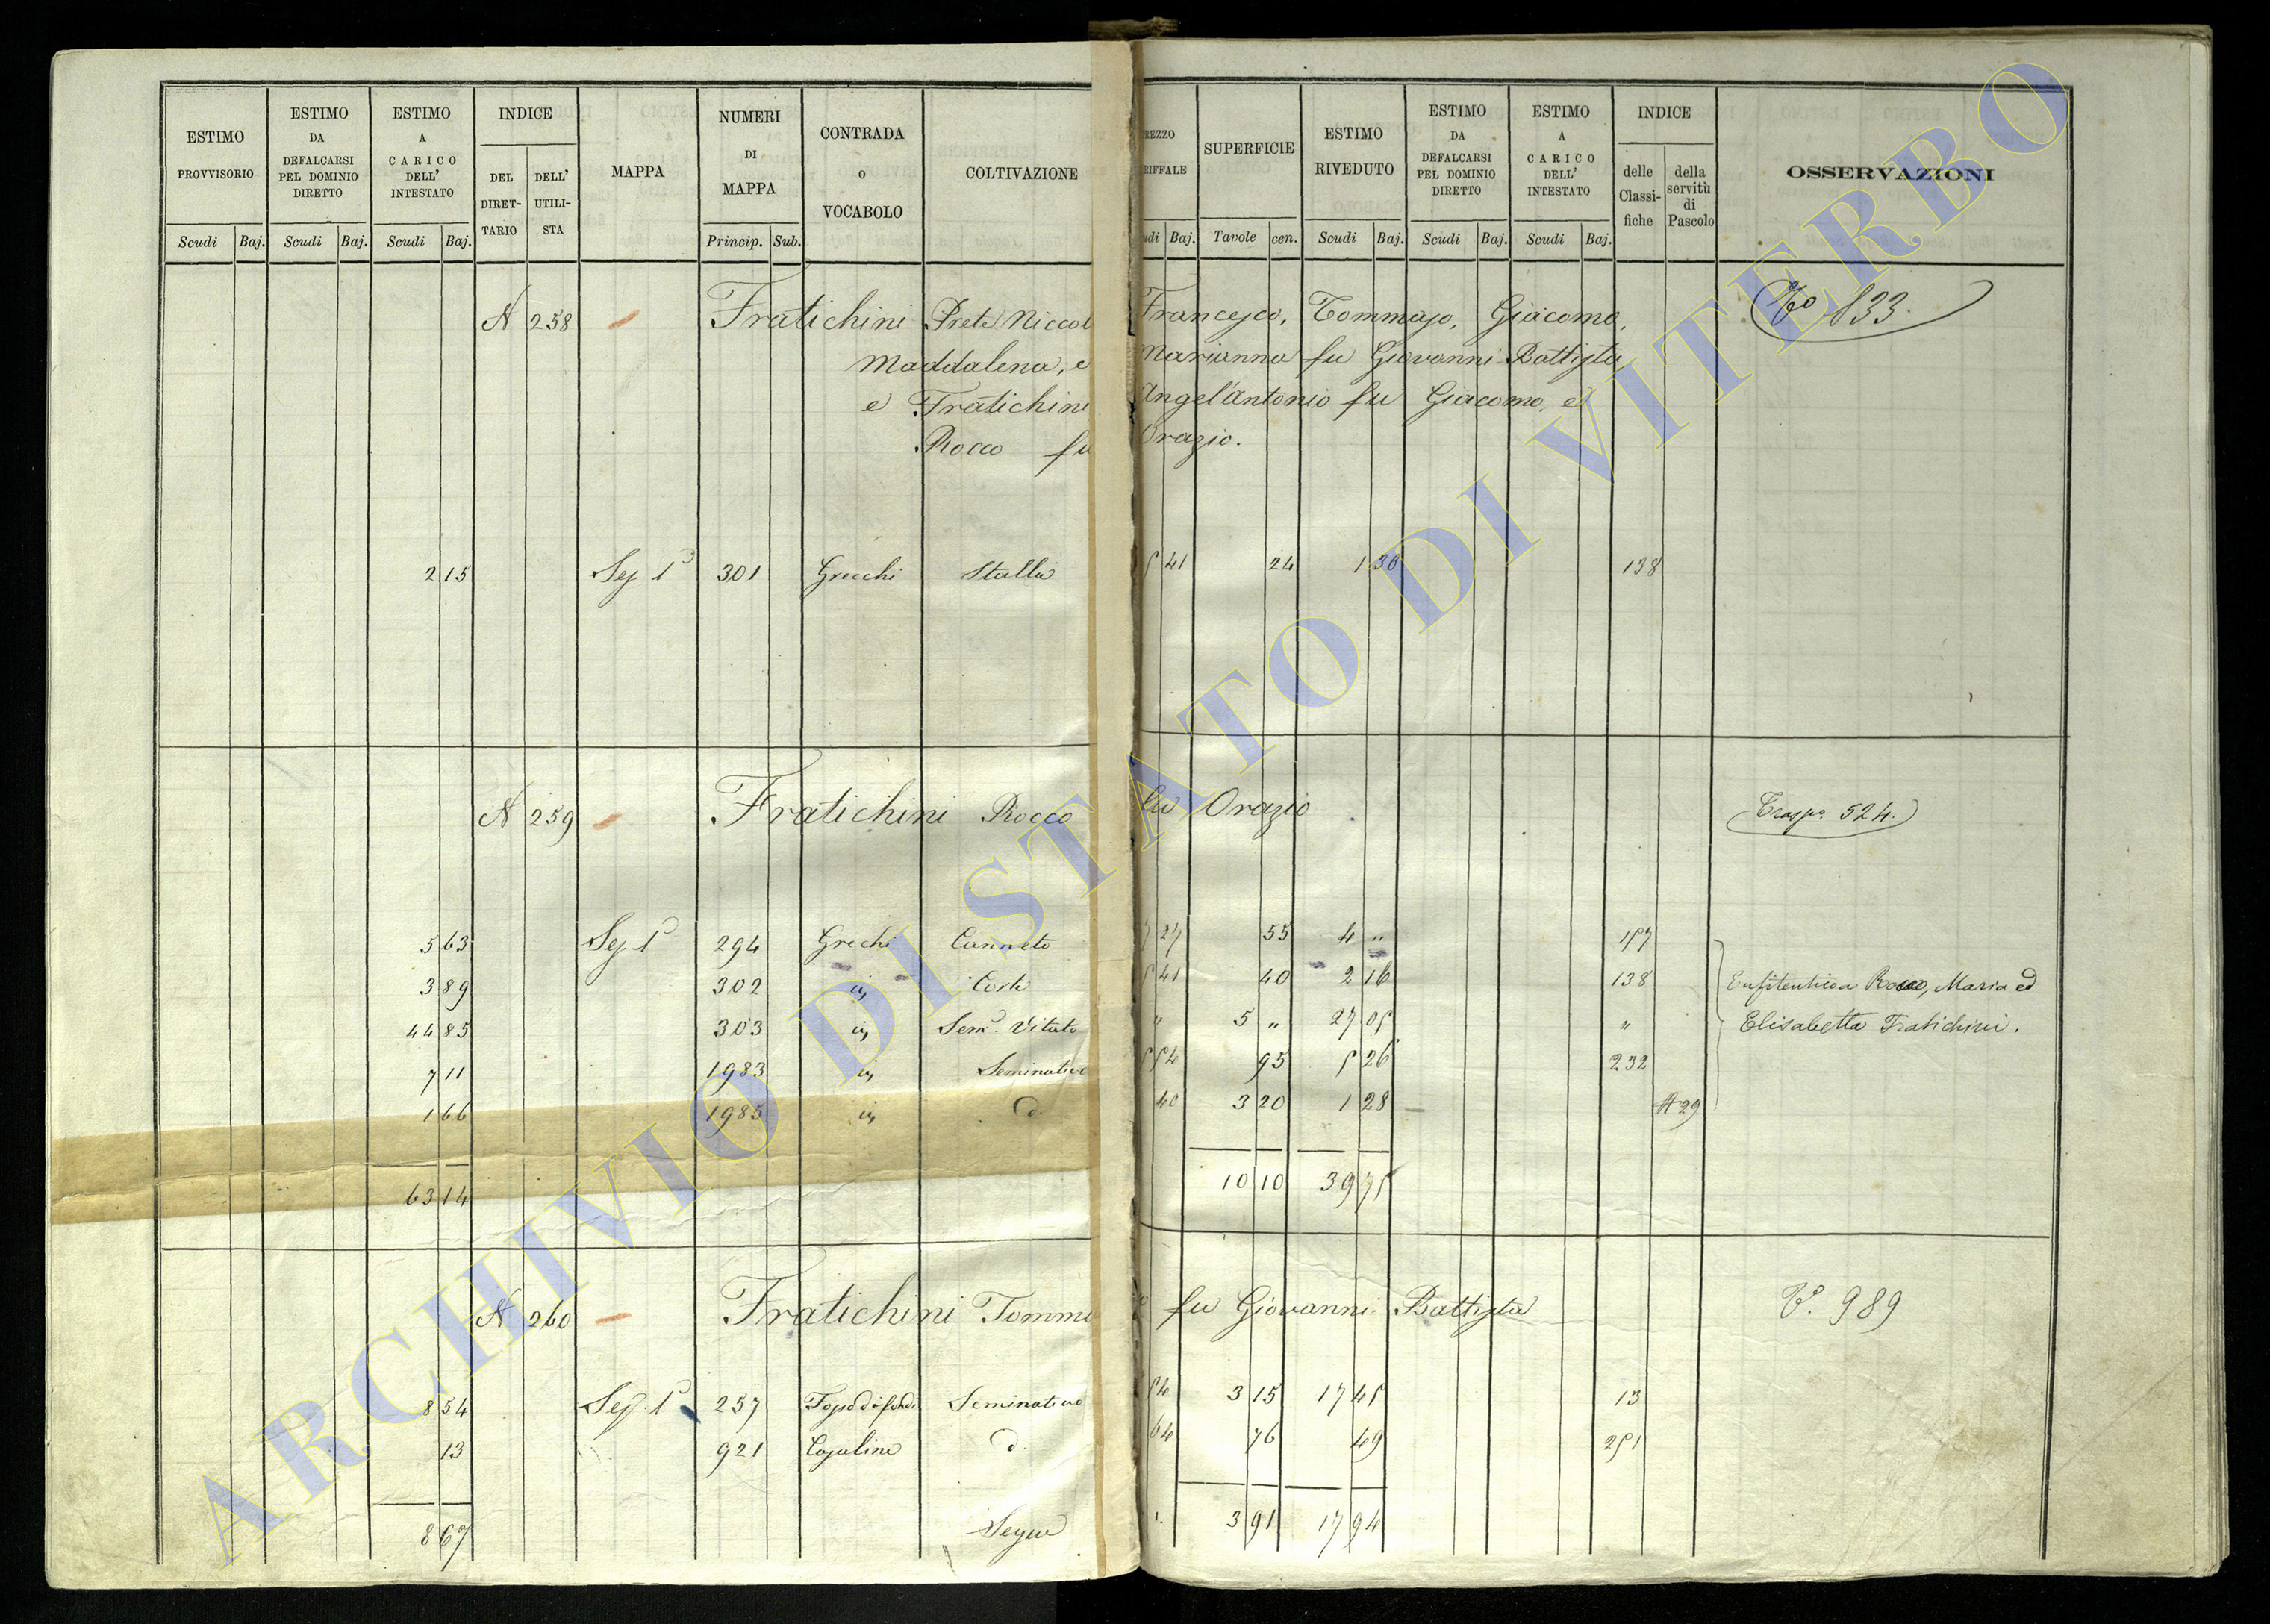 ESTIMO PROVVISORIO
ESTIMO DA DEFALCARSI PEL DOMINIO DIRETTO
ESTIMO A CARICO DELL' INTESTATO
INDICE
DEL DIRET-TARIO
DELL' UTILI-STA
MAPPA
NUMERI DI MAPPA
CONTRADA O VOCABOLO
COLTIVAZIONE
REZZO RIFFALE
SUPERFICIE
ESTIMO RIVEDUTO
ESTIMO DA DEFALCARSI PEL DOMINIO DIRETTO
ESTIMO A CARICO DELL' INTESTATO
INDICE
delle Classi-fiche
della servitù di Pascolo
OSSERVAZIONI
Scudi Baj. Scudi Baj. Scudi Baj. Princip. Sub. udi Baj. Tavole cen. Scudi Baj. Scudi Baj. Scudi Baj.
N 258 Fratichini Prete Niccol Francesco, Tommaso, Giacomo, 833.
Maddalena, e Marianna fu Giovanni Battista
e Fratichini Angel'Antonio fu Giacomo, e
Rocco fu Orazio.
2 15 Sez 1ª 301 Grecchi Stalla 5 41 24 1 30 138
N 259 Fratichini Rocco fu Orazio Trasp. 524.
5 63 Sez 1ª 294 Grechi Canneto 7 27 55 4 " 157
3 89 302 Corte 5 41 40 2 16 138 Enfiteutica Rocco, Maria ed
44 85 303 Sem. Vitato " 5 " 27 05 " Elisabetta Fratichini.
7 11 1983 Seminativo 5 54 95 5 26 232
1 66 1985 d. 40 3 20 1 28 29
63 14 10 10 39 75
N 260 Fratichini Tomma fu Giovanni Battista V.º 989
8 54 Sez. 1ª 257 Seminativo 54 3 15 17 45 13
13 921 Casaline d. 64 76 49 251
8 67 Segue 3 91 17 94
ARCHIVIO DI STATO DI VITERBO